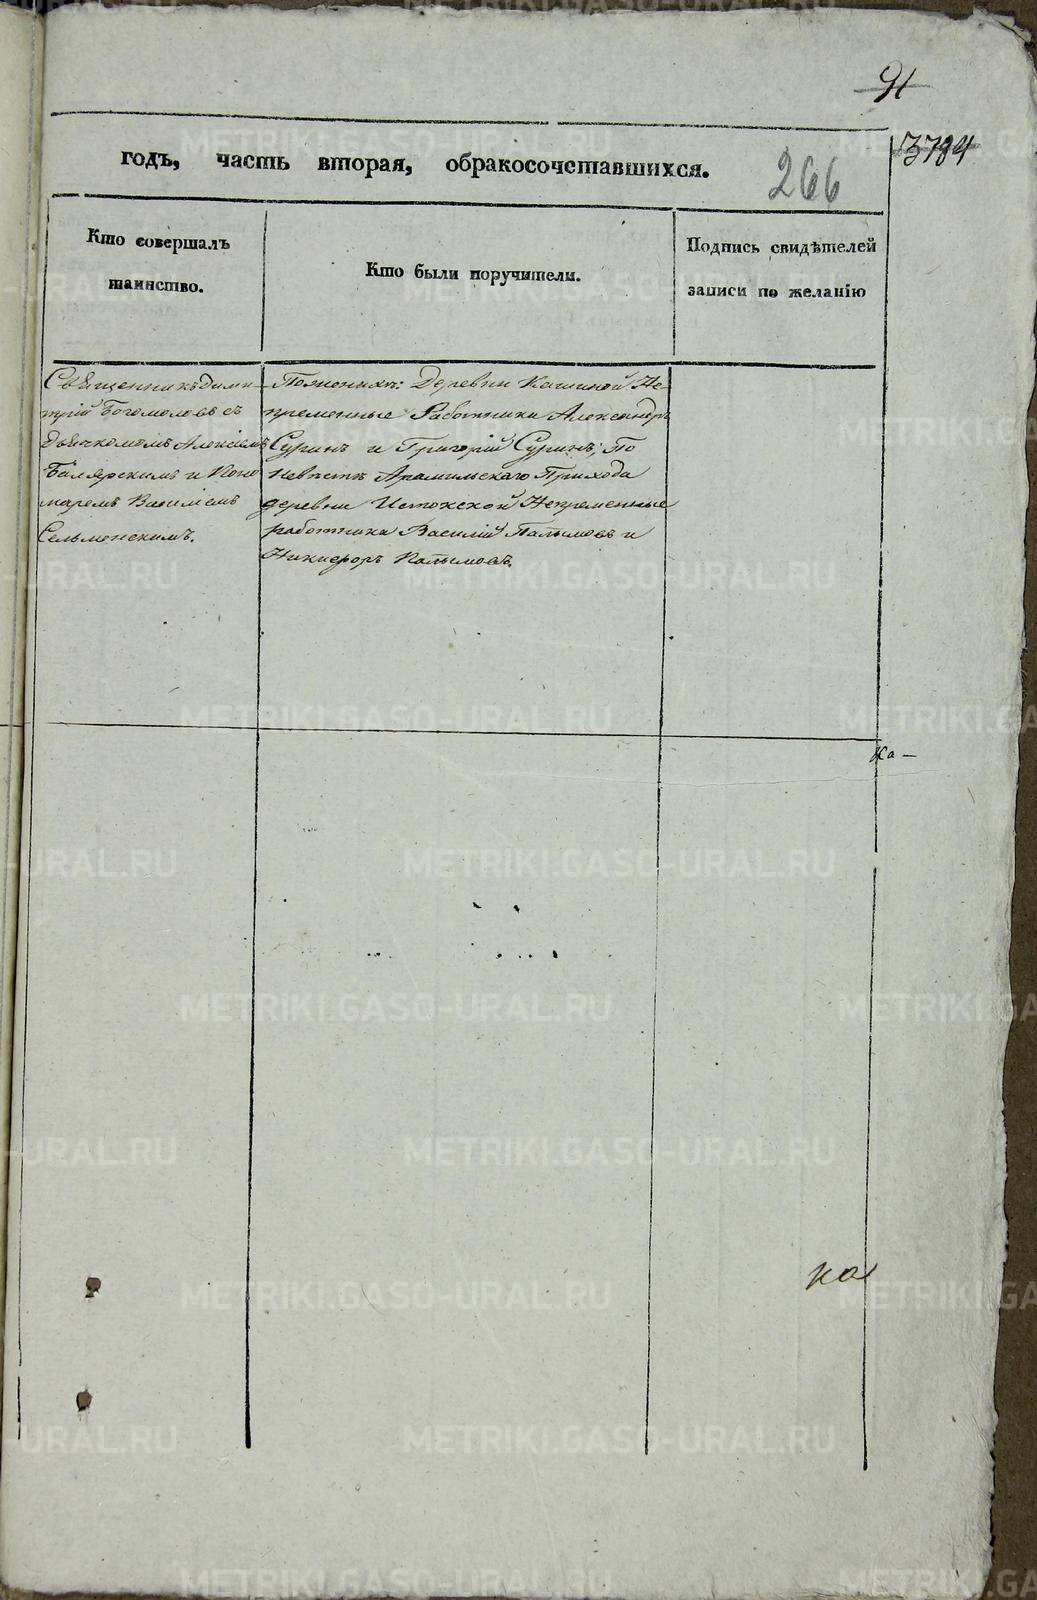 91
3784
годъ, часть вторая, обракосочетавшихся.
266
Кто совершалъ таинство.
Кто были поручители.
Подпись свидѣтелей записи по желанію
Священникъ Дими-
трій Богомоловъ съ
дьячкомъ Алексіемъ
и Поно-
маремъ Василіемъ
Сельменскимъ.
По женихѣ: Деревни Кашиной Не-
пременные Работники Александръ
Суринъ и Григорій Суринъ; По
невѣстѣ Арамильскаго Прихода
деревни Истокской Непременные
работники Василій Палымовъ и
Никифоръ Палымовъ.
Ка-
ка
METRIKI.GASO-URAL.RU